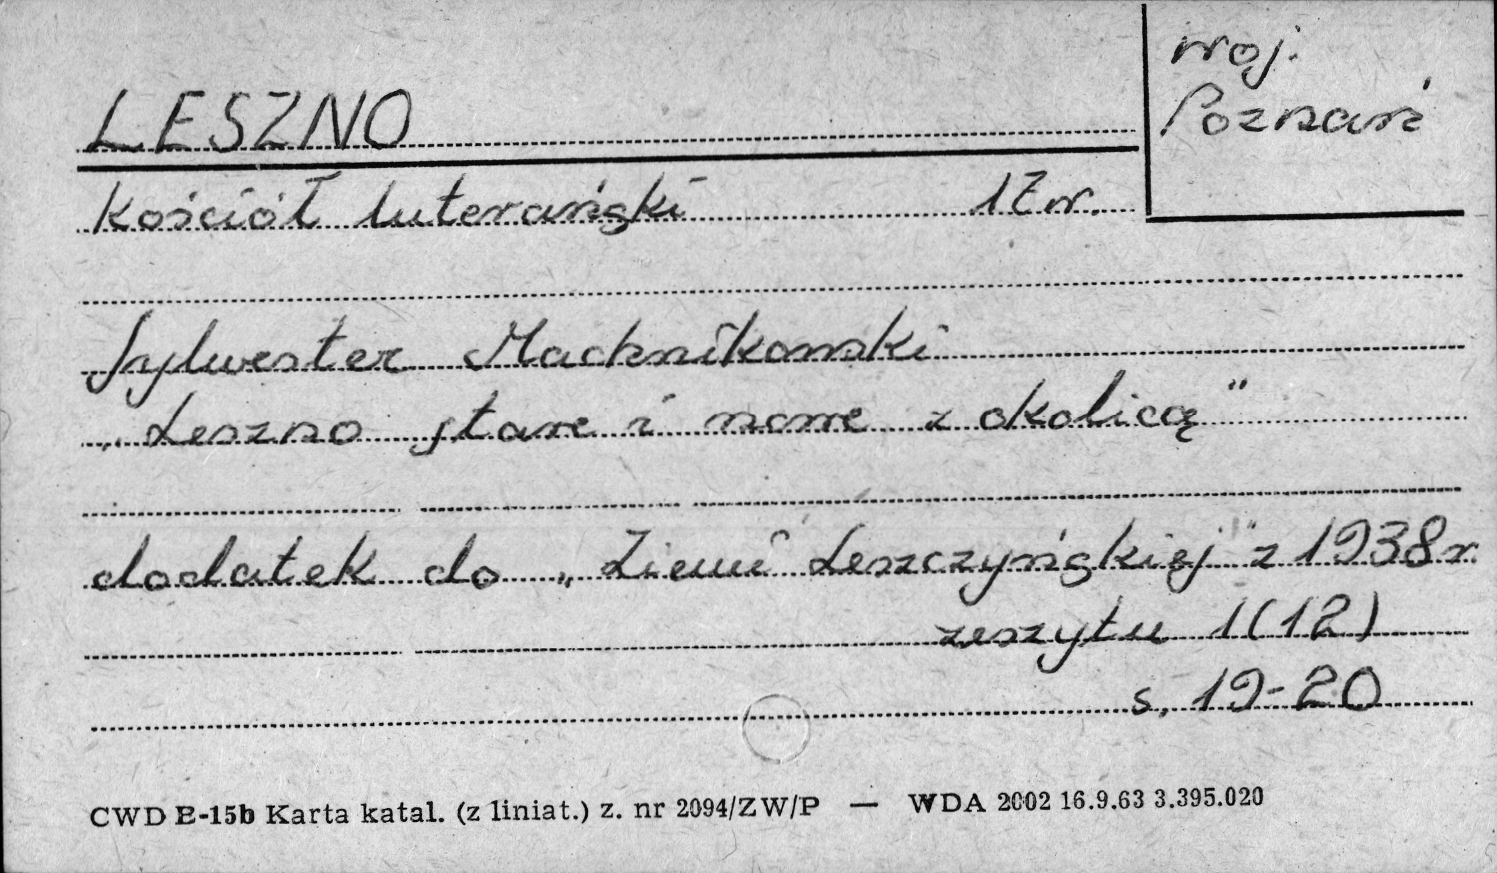 woj.
Poznań
LESZNO
Kościół luterański 17 w.
Sylwester Machnikowski
„Leszno stare i nowe z okolicą"
dodatek do „Ziemi Leszczyńskiej" z 1938 r.
zeszytu 1(12)
s. 19-20
CWD E-15b Karta katal. (z liniat.) z. nr 2094/ZW/P — WDA 2002 16.9.63 3.395.020